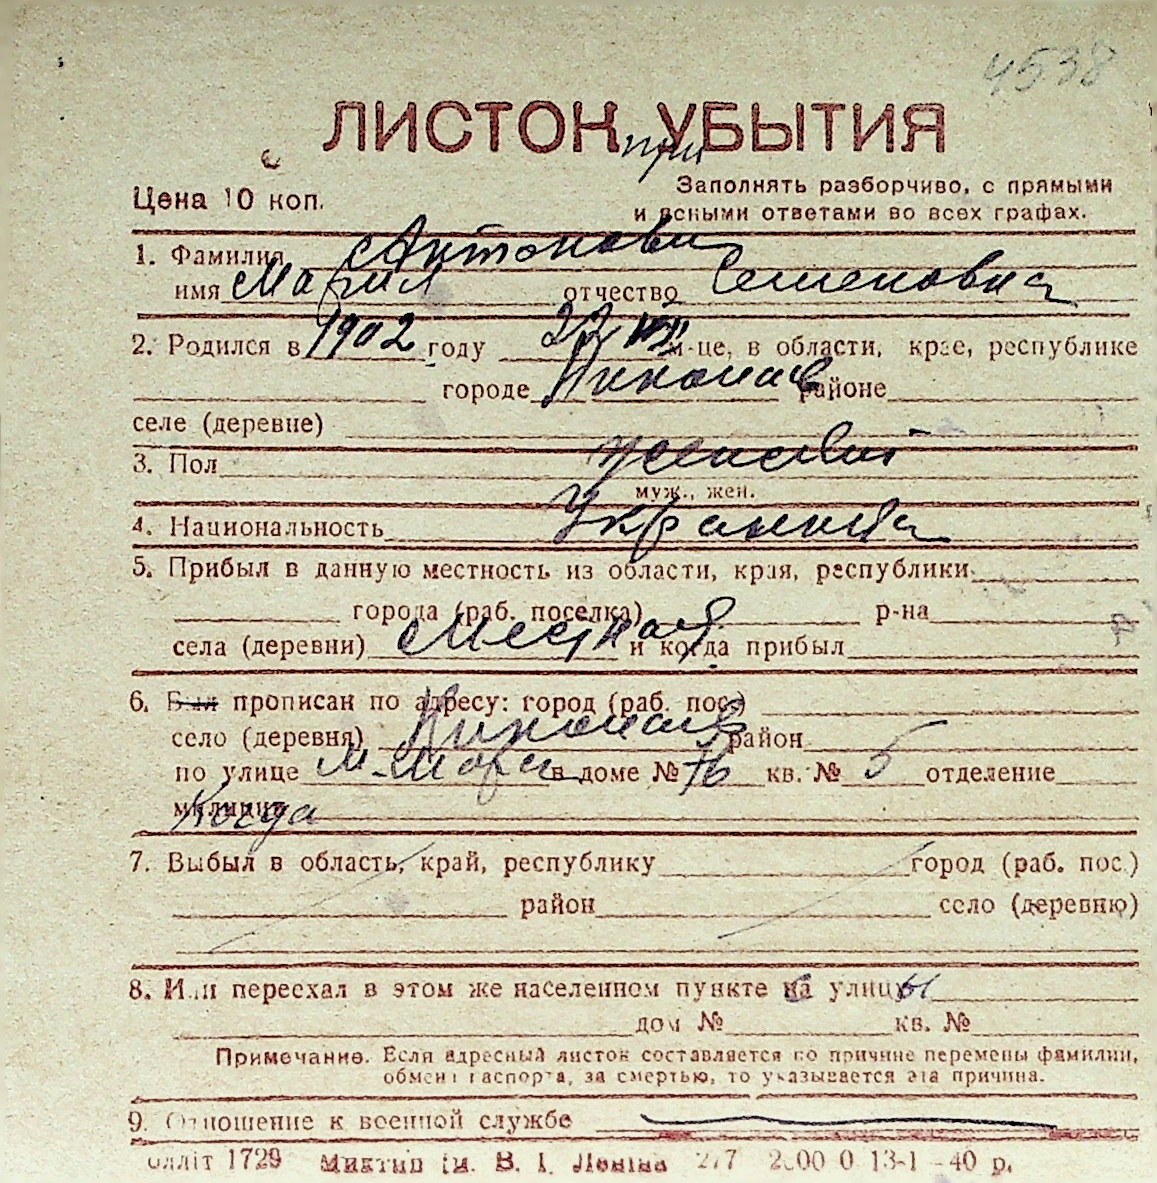 4538
ЛИСТОК УБЫТИЯ
при
Цена 10 коп.
Заполнять разборчиво, с прямыми
и ясными ответами во всех графах.
1. Фамилия Антонович
имя Мария отчество Семеновна
2. Родился в 1902 году 22 м-це, в области, крае, республике
городе Николаев районе
селе (деревне)
3. Пол женский
муж., жен.
4. Национальность Украинка
5. Прибыл в данную местность из области, края, республики
города (раб. поселка) р-на
села (деревни) Местная и когда прибыл
6. Был прописан по адресу: город (раб. пос.)
село (деревня) Николаев район
по улице М-Морская в доме № 76 кв. № 5 отделение
милиции Когда
7. Выбыл в область, край, республику город (раб. пос.)
район село (деревню)
8. Или переехал в этом же населенном пункте на улицу
дом № кв. №
Примечание. Если адресный листок составляется по причине перемены фамилии,
обмена паспорта, за смертью, то указывается эта причина.
9. Отношение к военной службе
1729 им. В. І. Леніна 277 13-1-40 р.